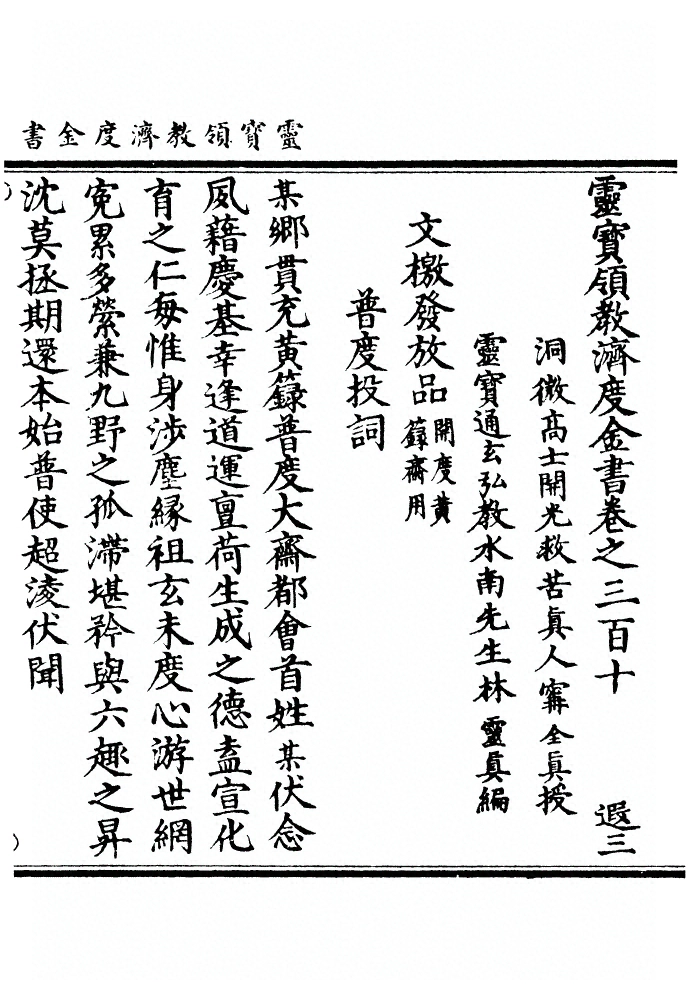 靈寶領教濟度金書
靈寶領教濟度金書卷之三百十 遐三
洞微高士開光救苦眞人寗全眞授
靈寶通玄弘教水南先生林靈眞編
文檄發放品開度黃籙齋用
普度投詞
某鄉貫充黃籙普度大齋都會首姓某伏念
夙藉慶基幸逢道運亶荷生成之德盍宣化
育之仁每惟身涉塵緣祖玄未度心游世網
寃累多縈兼九野之孤滯堪矜與六趣之昇
沈莫拯期還本始普使超淩伏聞